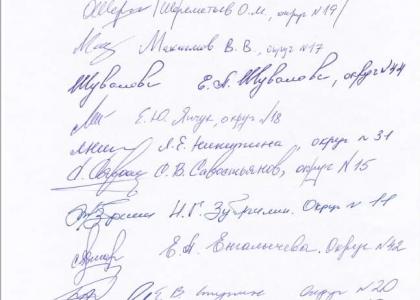 Шереметьев О.М., округ №19/
Максимов В. В., округ №17
Шувалова Е. А. Шувалова, округ №44
Е.Ю. Яичук, округ №18
Л.Е. Никитина, округ № 31
С. В. Савостьянов, округ №15
Н. Г. Зубрилин. Округ № 11
Е. А. Енгалычева. Округ №42
Е. В. Ступин округ №20